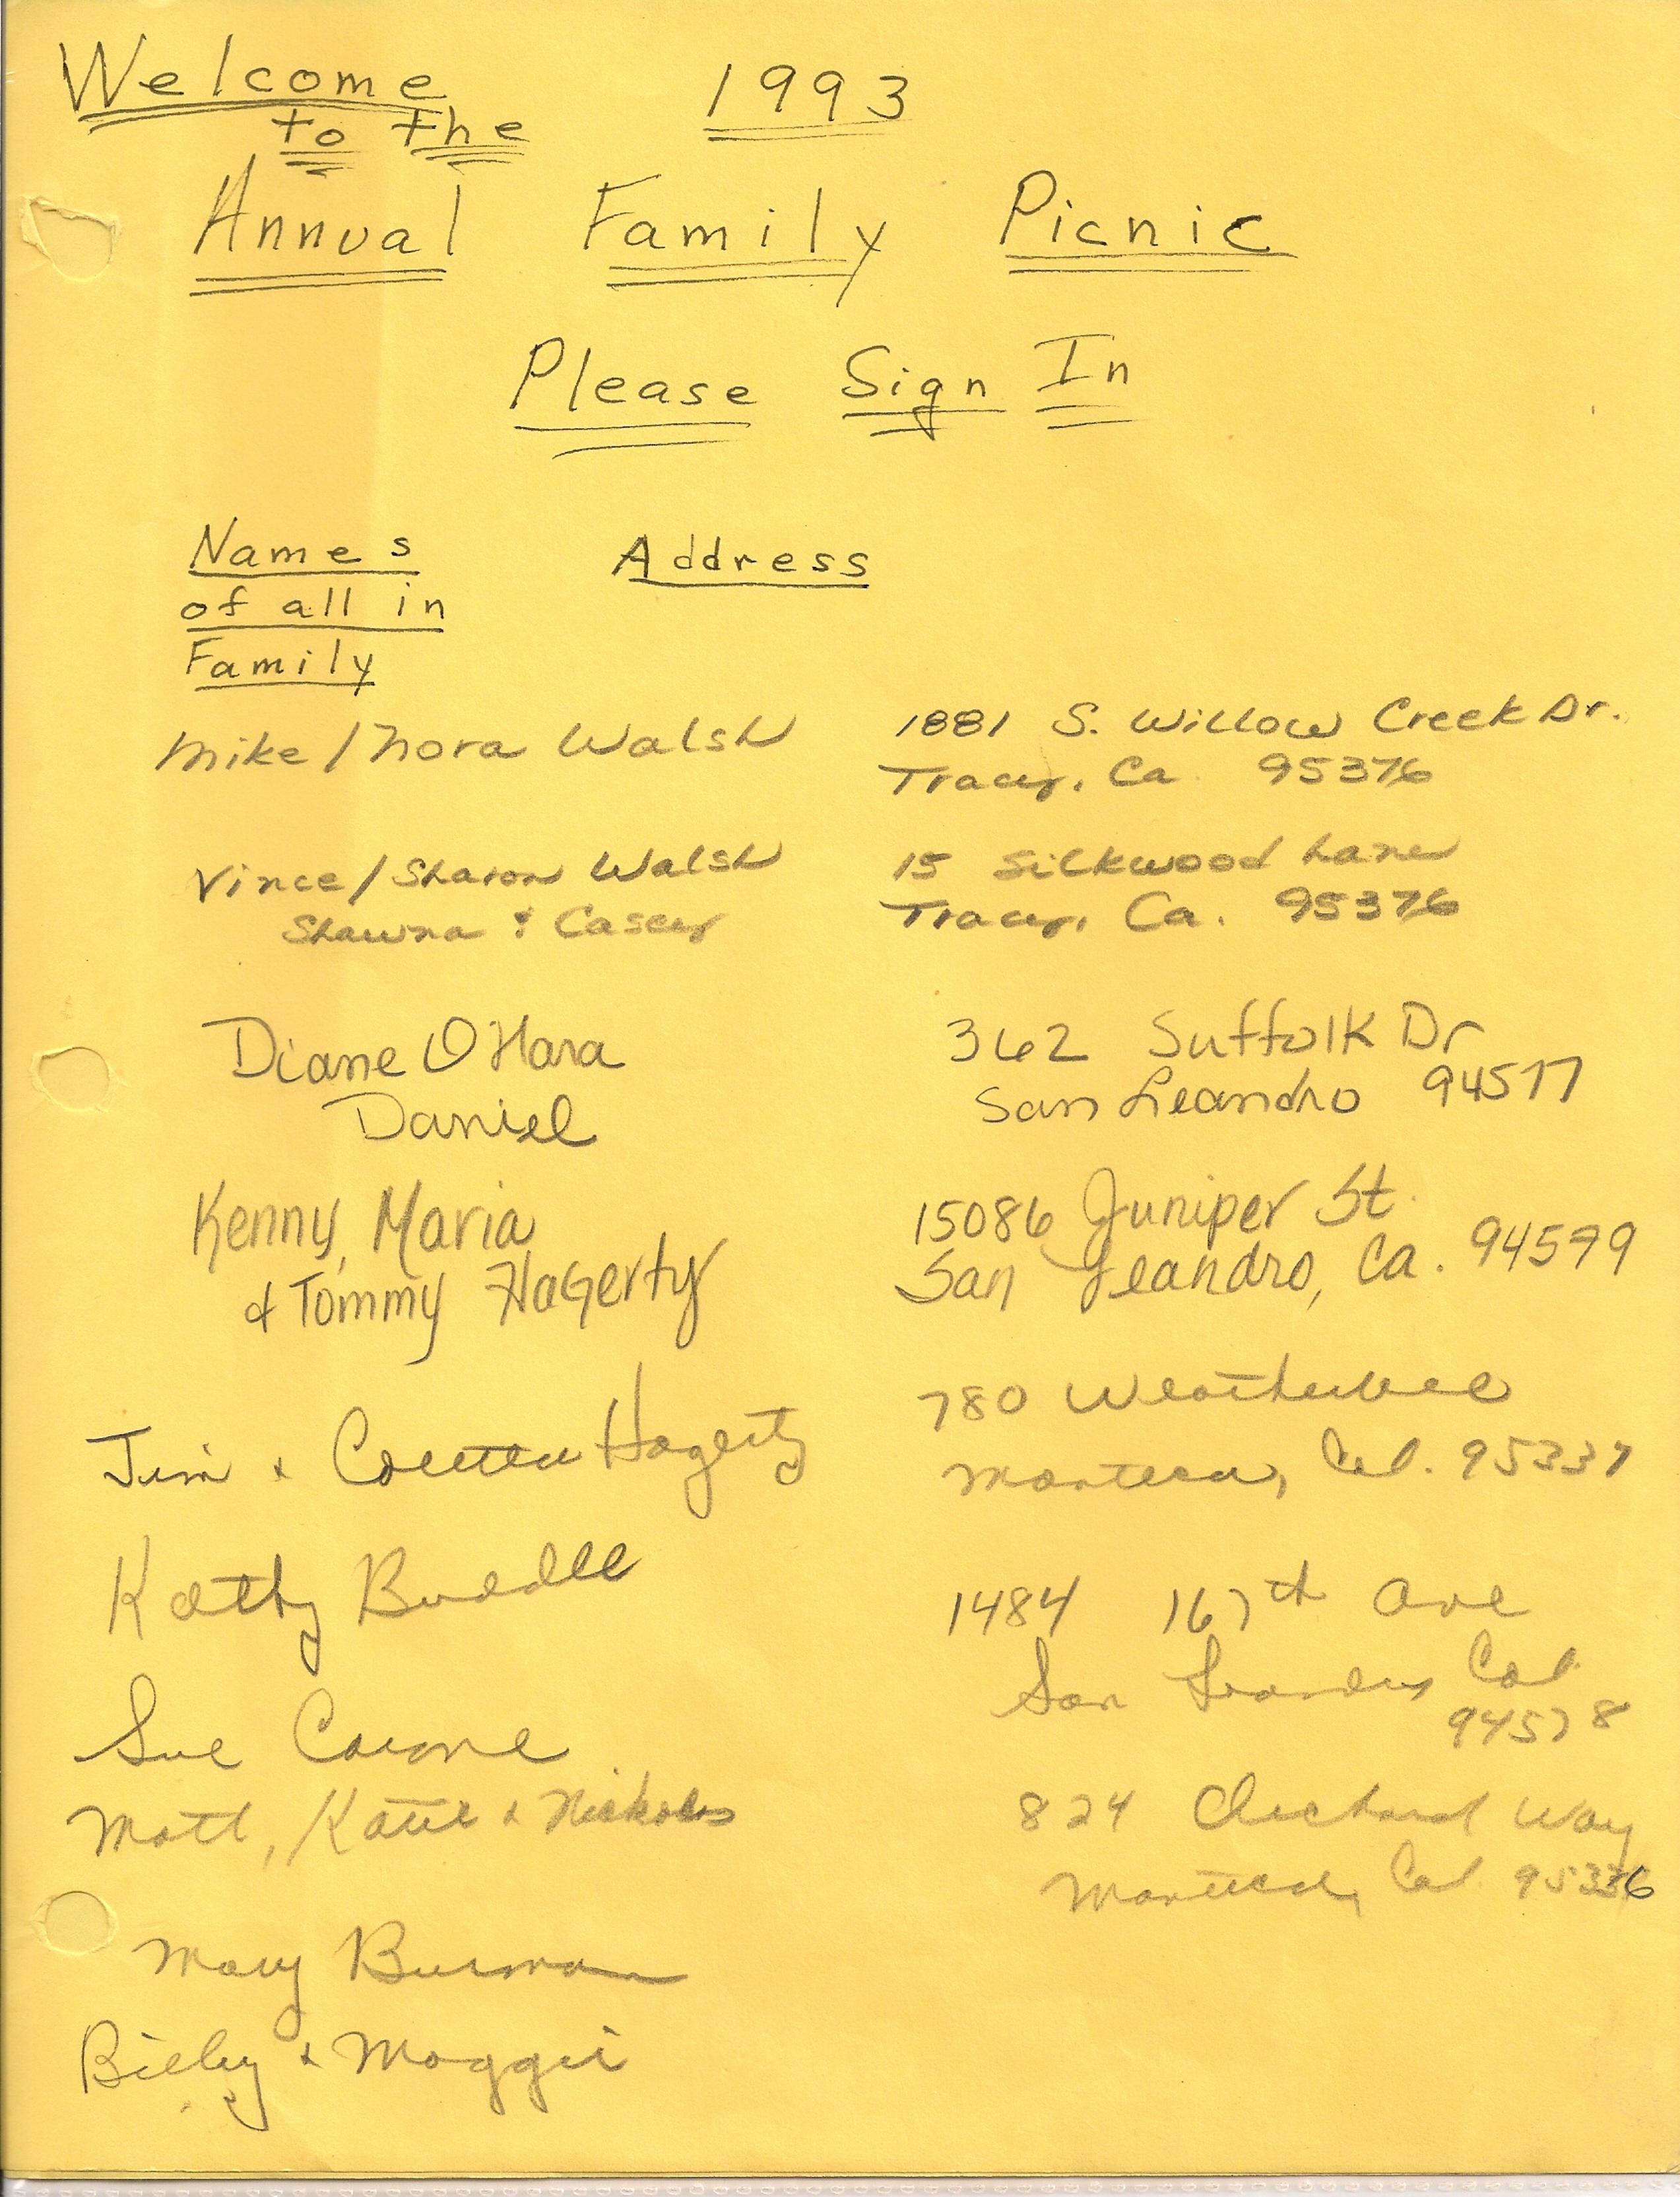 Welcome 1993
to the
Annual Family Picnic
Please Sign In
Names Address
of all in
Family
Mike / Nora Walsh 1881 S. Willow Creek Dr.
Tracy, Ca 95376
Vince / Sharon Walsh 15 Silkwood Lane
Shawna & Casey Tracy, Ca. 95376
Diane O'Hara 362 Suffolk Dr
Daniel San Leandro 94577
Kenny, Maria 15086 Juniper St.
& Tommy Hagerty San Leandro, Ca. 94579
Jim & Coletta Hagerty 780 Weatherbee
Manteca, Cal. 95337
Kathy 1484 167th Ave
San Leandro Cal.
94578
Sue Carone
Matt, Katie & Nickolas 824 Orchard Way
Manteca, Cal. 95336
Mary Burman
Billy & Maggie